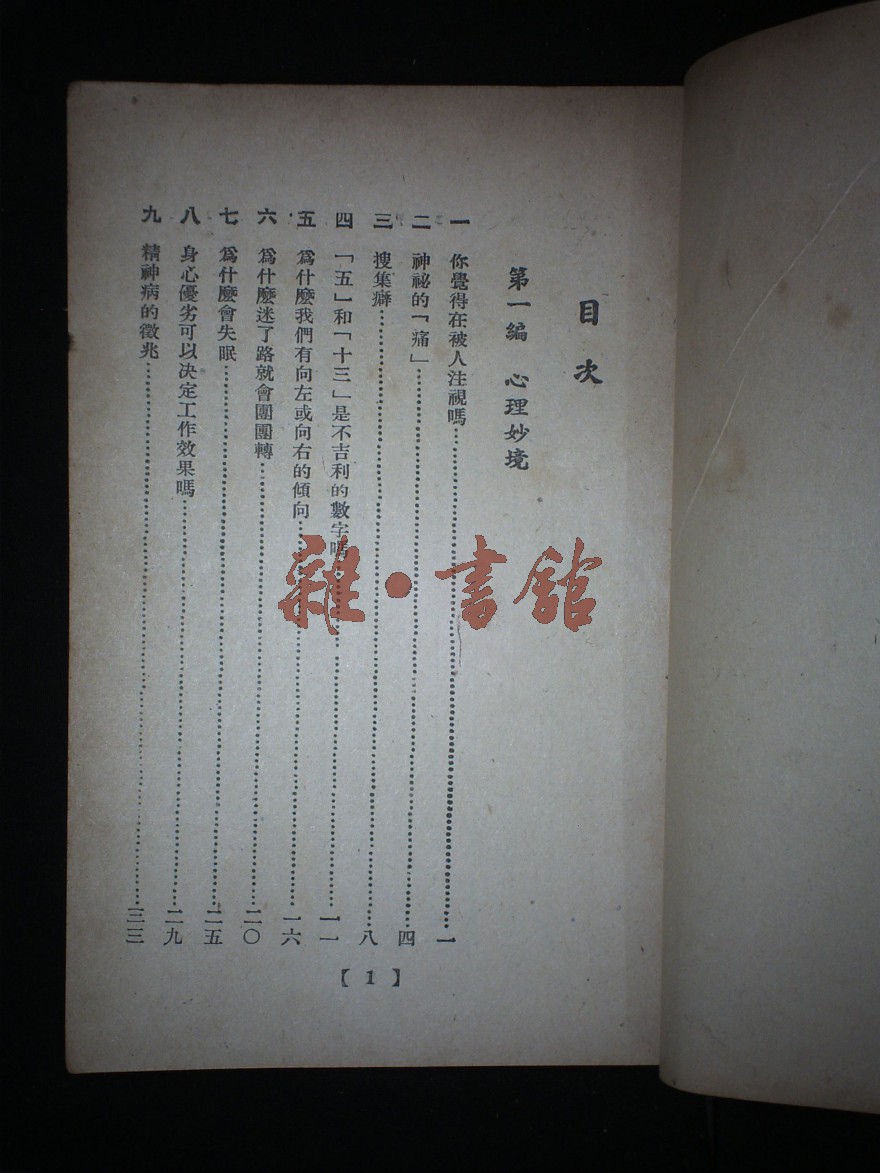 目次
第一編 心理妙境
一 你覺得在被人注視嗎……一
二 神祕的「痛」……四
三 搜集癖……八
四 「五」和「十三」是不吉利的數字嗎……一一
五 爲什麼我們有向左或向右的傾向……一六
六 爲什麼迷了路就會團團轉……二〇
七 爲什麼會失眠……二五
八 身心優劣可以決定工作效果嗎……二九
九 精神病的徵兆……三三
【1】
雜·書館